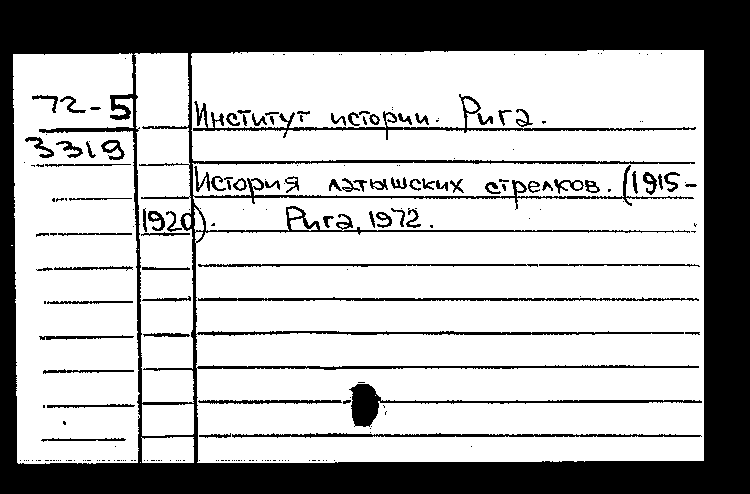 72-5
3319
Институт истории. Рига.
История латышских стрелков. (1915-
1920). Рига, 1972.